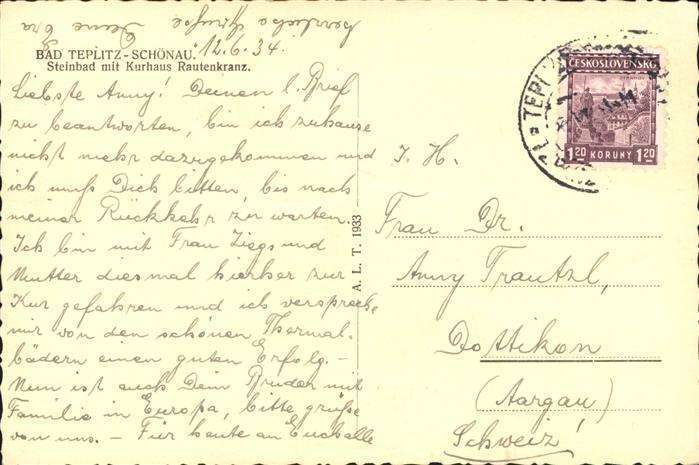 BAD TEPLITZ-SCHÖNAU. 12.6.34.
Steinbad mit Kurhaus Rautenkranz.
Liebste Anny! Deinen l. Brief
zu beantworten, bin ich zuhause
nicht mehr dazugekommen und
ich muß Dich bitten, bis nach
meiner Rückkehr zu warten.
Ich bin mit Frau und
Mutter diesmal hierher zur
Kur gefahren und ich verspreche
mir von den schönen Thermal-
bädern einen guten Erfolg. –
Nun ist auch Dein Bruder mit
Familie in Europa, bitte grüße
von uns. – Für heute an Euch alle
herzliche Grüße Deine
A. L. T. 1933
TEPL
ČESKOSLOVENSKO
1.20 KORUNY 1.20
I. H.
Frau Dr.
Anny Trautzl,
Dottikon
(Aargau)
Schweiz!